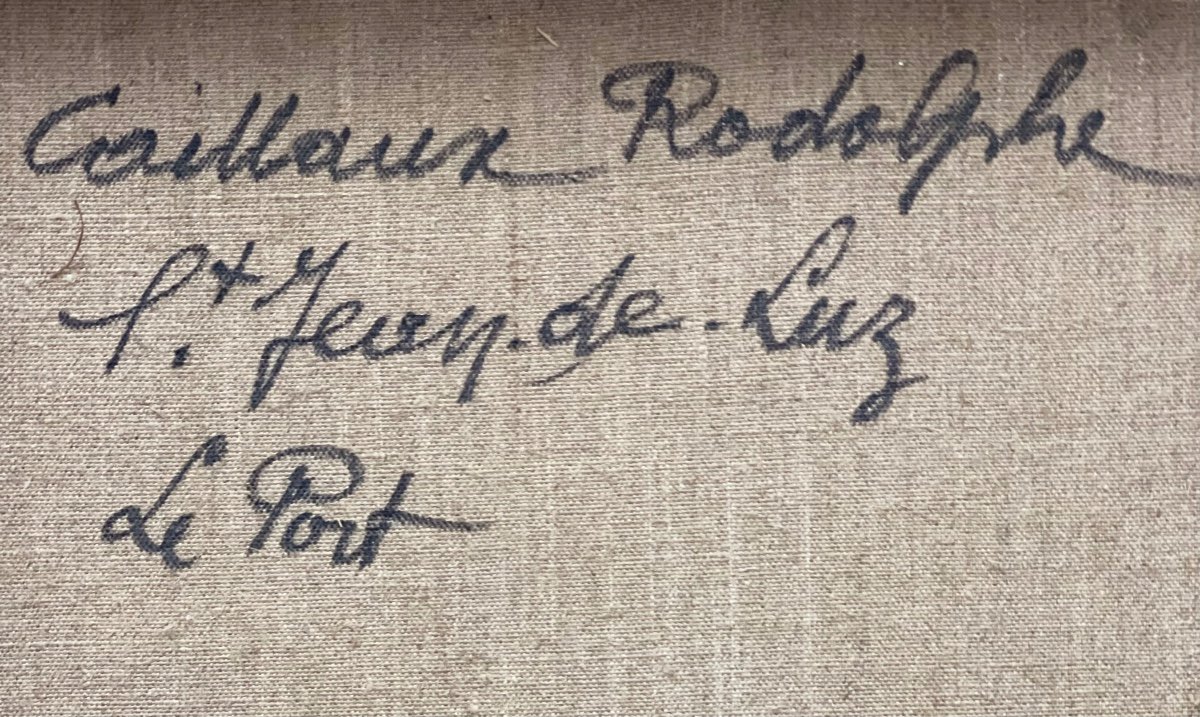 Caillaux Rodolphe
St. Jean.de.Luz
Le Port